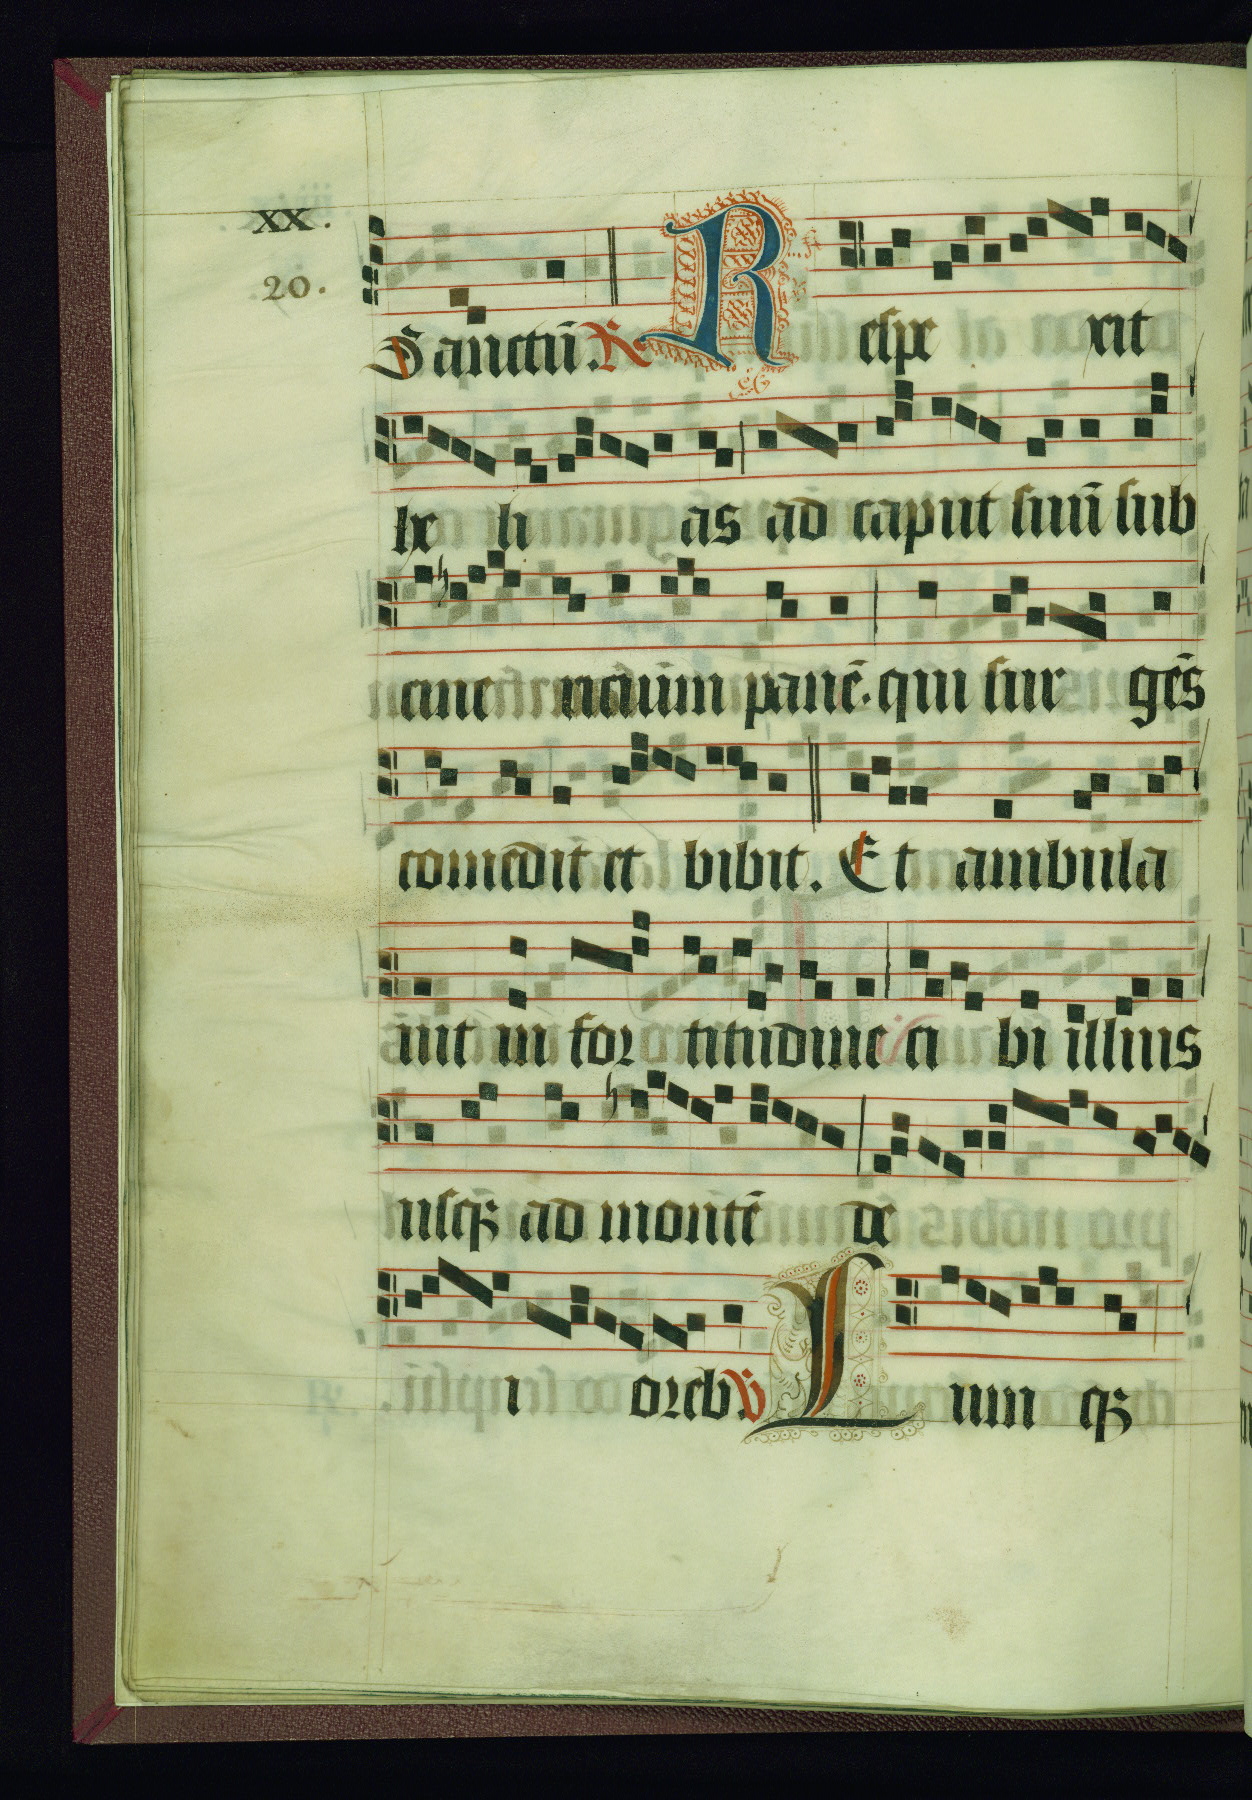 xx.
20.
Sanctū. ℟ Respe xit
he li as ad caput suū sub
cine riciūm panē. qui sur gēs
comedit et bibit. Et ambula
uit in for titudine ci bi illius
usqꝫ ad montē de
i oreb. ℣ Lun qꝫ